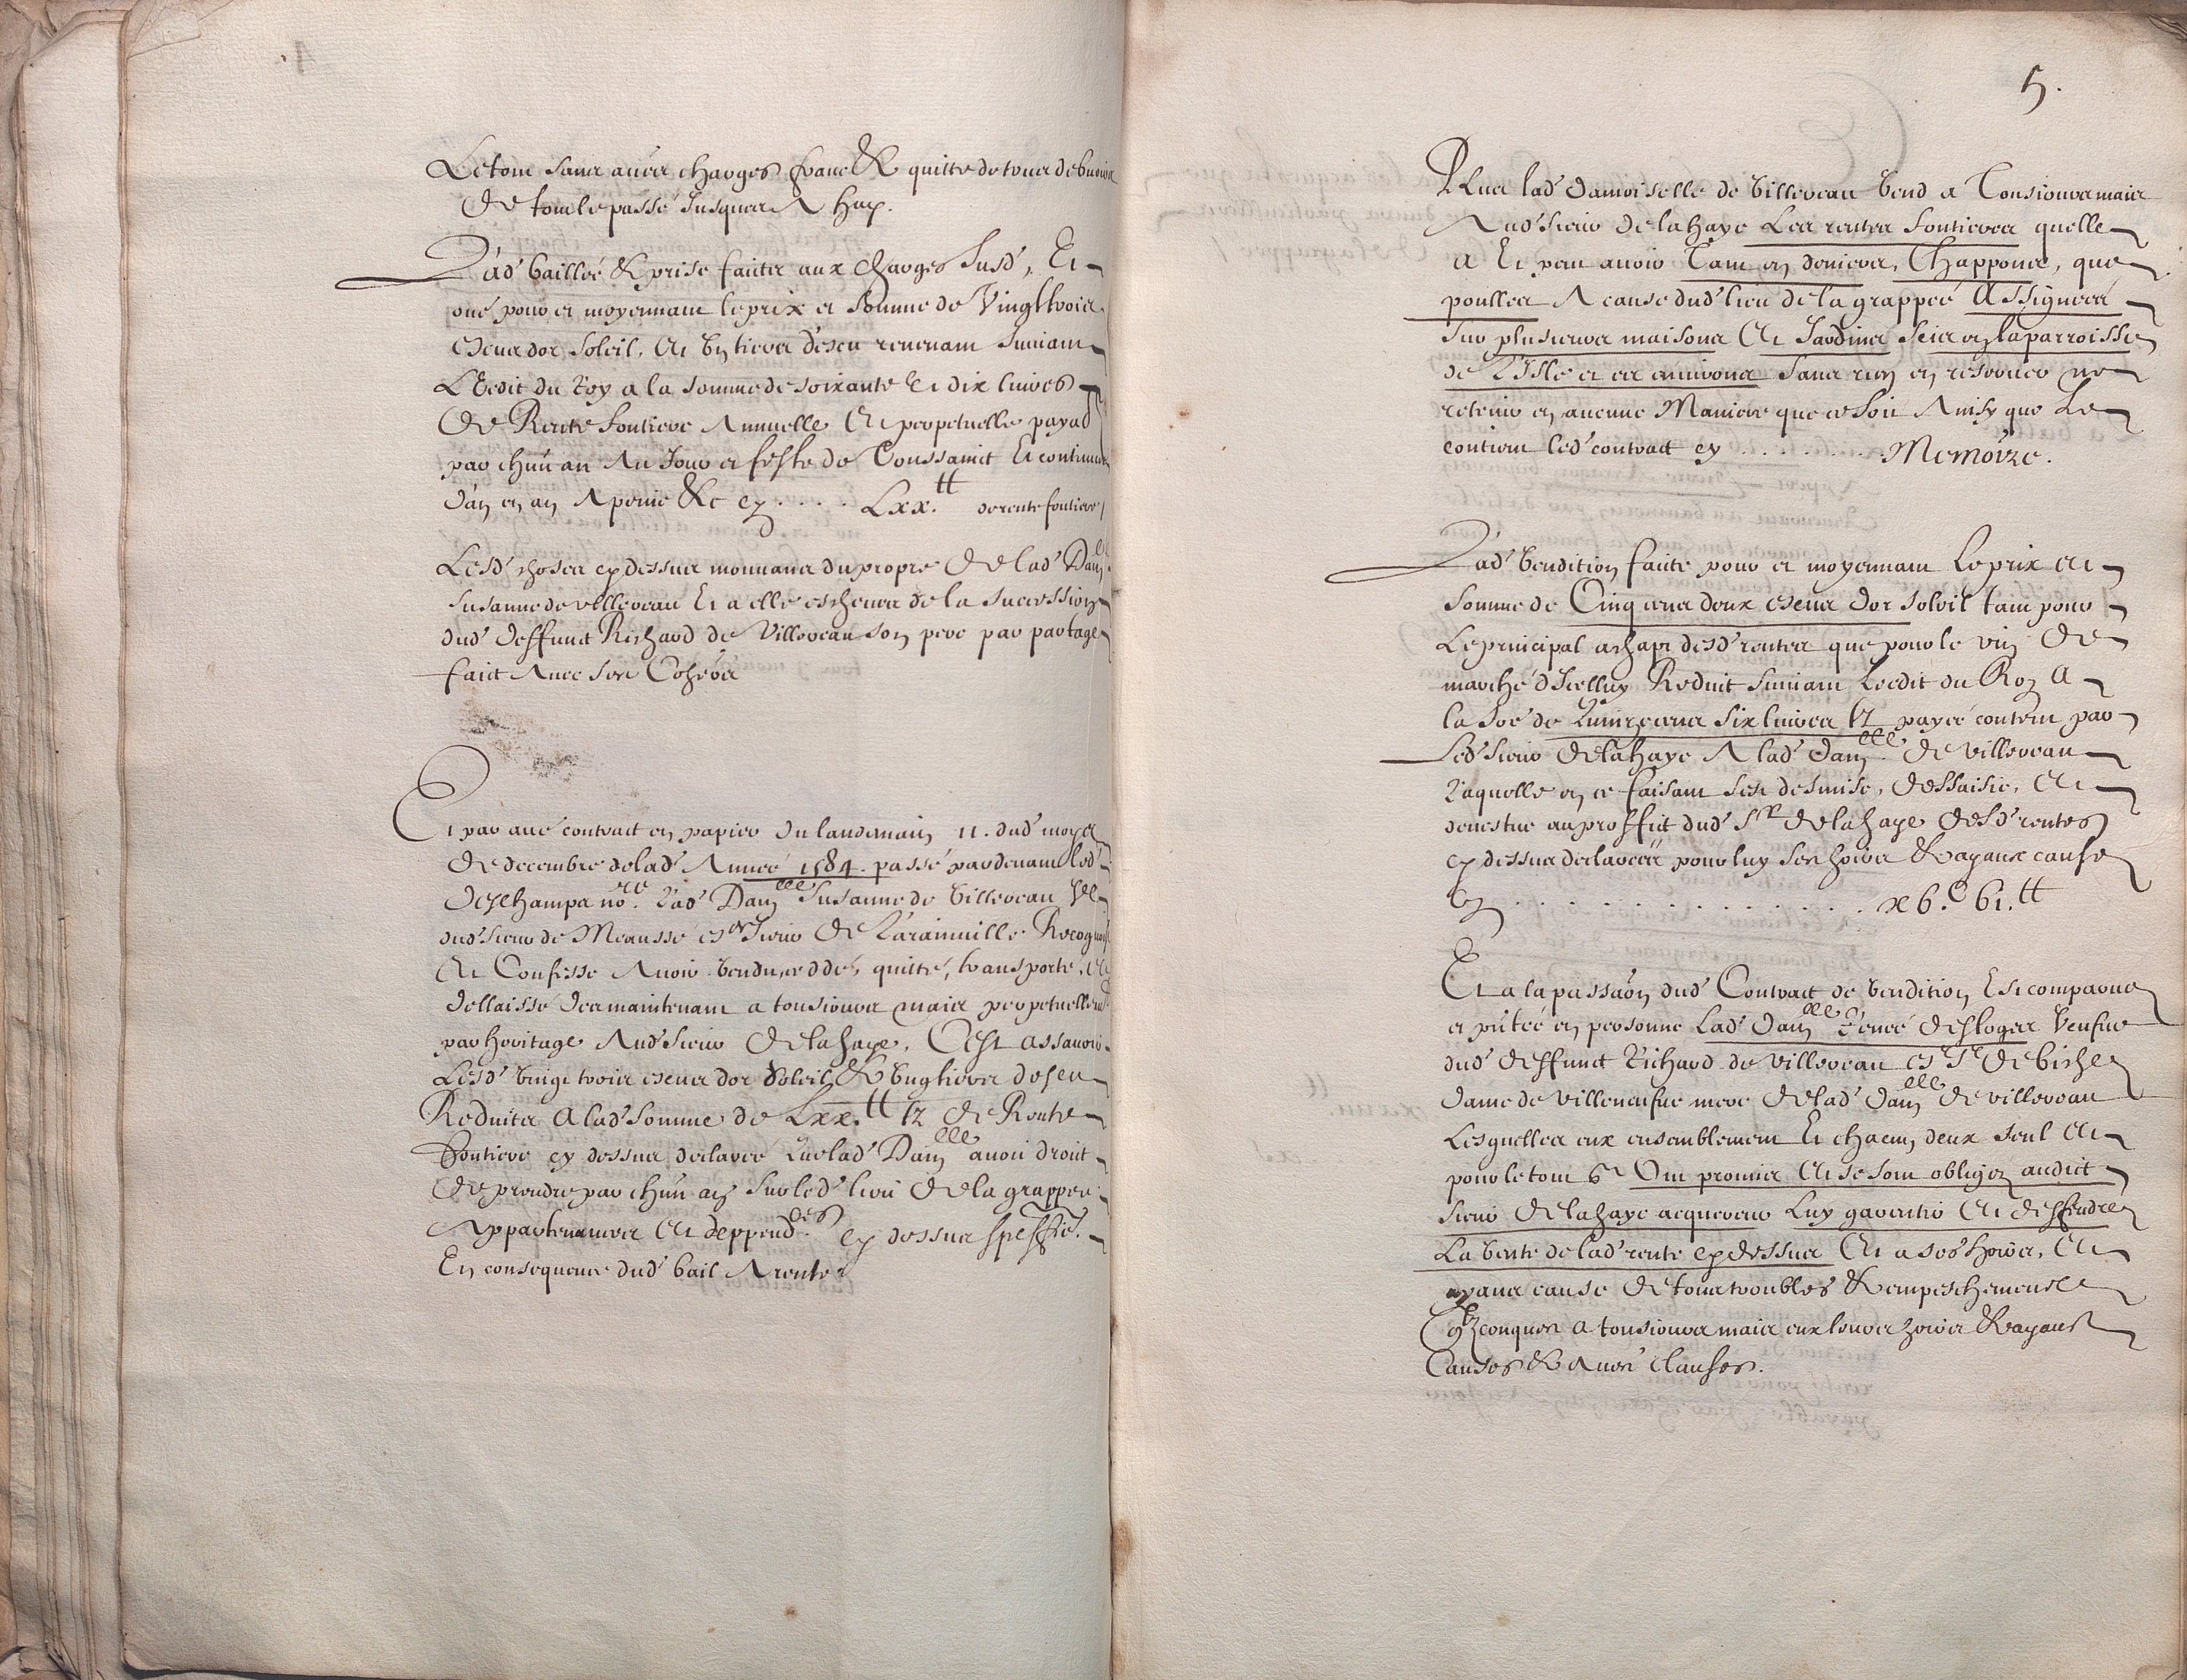 Le tout sans aues charges franc & quitte de tous debuoirs
De tout le passé Jusques A huy.
Lad' baillée & prise faite aux charges susd', Et
oué pour et moyennant le prix et Somme de Vingt trois
escus dor Soleil, Et Un tiers d'escu reuenant suiuant
L'Eedit du Roy a la somme de soixante Et dix liures
De Rente fontiere Annuelle Et perpetuelle payab
par chūn an Au Jour et feste de Toussainct Et continuer
d'an en an A peine &c cy . . . . Lxx.tt de rente fontiere /
Lesd' choses cy dessus mouuans du propre De lad' Damlle
Susanne de Villereau Et a elle escheues de la succession
dud' deffunct Richard de Villereau son pere par partage
faict Auec ses Cohers
Et par aue contract en papier du landemain 11. dud' moys
De decembre de lad' Année 1584. passé pardeuant led'
Deschamps nore. Lad' Damlle Susanne de Villereau Ve
dud' sieur de Meausse esr Sieur De Larainuille Recognoist
Et Confesse Auoir vendu, ceddé, quitté, transporté, Et
dellaissé des maintenant a tousiours mais perpetuellemt
par heritage Aud' sieur Delahaye, C'est assauoir
Lesd' Vingt trois escus dor Soleil & Ung tiers d'escu
Reduites A lad' Somme de Lxx.tt tz De Rente
Fontiere cy dessus declarée Que lad' Damlle auoit droit
De prendre par chūn an Sur led' lieu De la grappée
Appartenances Et deppendces cy dessus speffié.
En consequence dud' bail A rente
5.
Plus lad' damoiselle de Villereau Vend a Tousioursmais
Aud' Sieur Delahaye Les rentes fontieres quelle
a Et peut auoir Tant en deniers, Chappons, que
poulles A cause dud' lieu de la grappeé Assigneés
Sur plusieurs maisons Et Jardins seis en la parroisse
de L'Isle et es enuirons Sans rien en reseruer ne
retenir en aucune Maniere que ce soit Ainsy que Le
contient led' contract cy . . . . . . . Memoire.
Lad' Vendition faite pour et moyennant Le prix Et
Somme de Cinq cens deux escus dor soleil tant pour
Le principal achapt desd' rentes que pour le vin De
marché d'Icelluy Reduit suiuant L'eedit du Roy A
la soe de Quinze cens six liures tz payeé contant par
Led' sieur Delahaye A lad' damlle De Villereau
Laquelle en ce faisant sest desmise, dessaisie, Et
deuestue au proffict dud' Sr Delahaye Desd' rentes
cy dessus declareés pour luy ses hoirs & ayans cause
Cy . . . . . . . . . . . . . . xv.c vi.tt
Et a la passaōn dud' Contract de Vendition Est comparue
et pn̄tée en personne Lad' damlle Reneé Desloges Veufue
dud' deffunct Richard de Villereau esr Sr De Bische
Dame de Villeneufue mere Delad' damlle De Villereau
Lesquelles eux ensemblement Et chacun deux seul Et
pour le tout &c Ont promis Et se sont obligez audict
Sieur Delahaye acquereur Luy garentir Et Deffendre
La Vente de lad' rente cy dessus Et a ses hoirs, Et
ayans cause De tous troubles & empeschemens
Qzconques a tousiours mais eux leurs hoirs & ayans
Causes & Aues clauses.